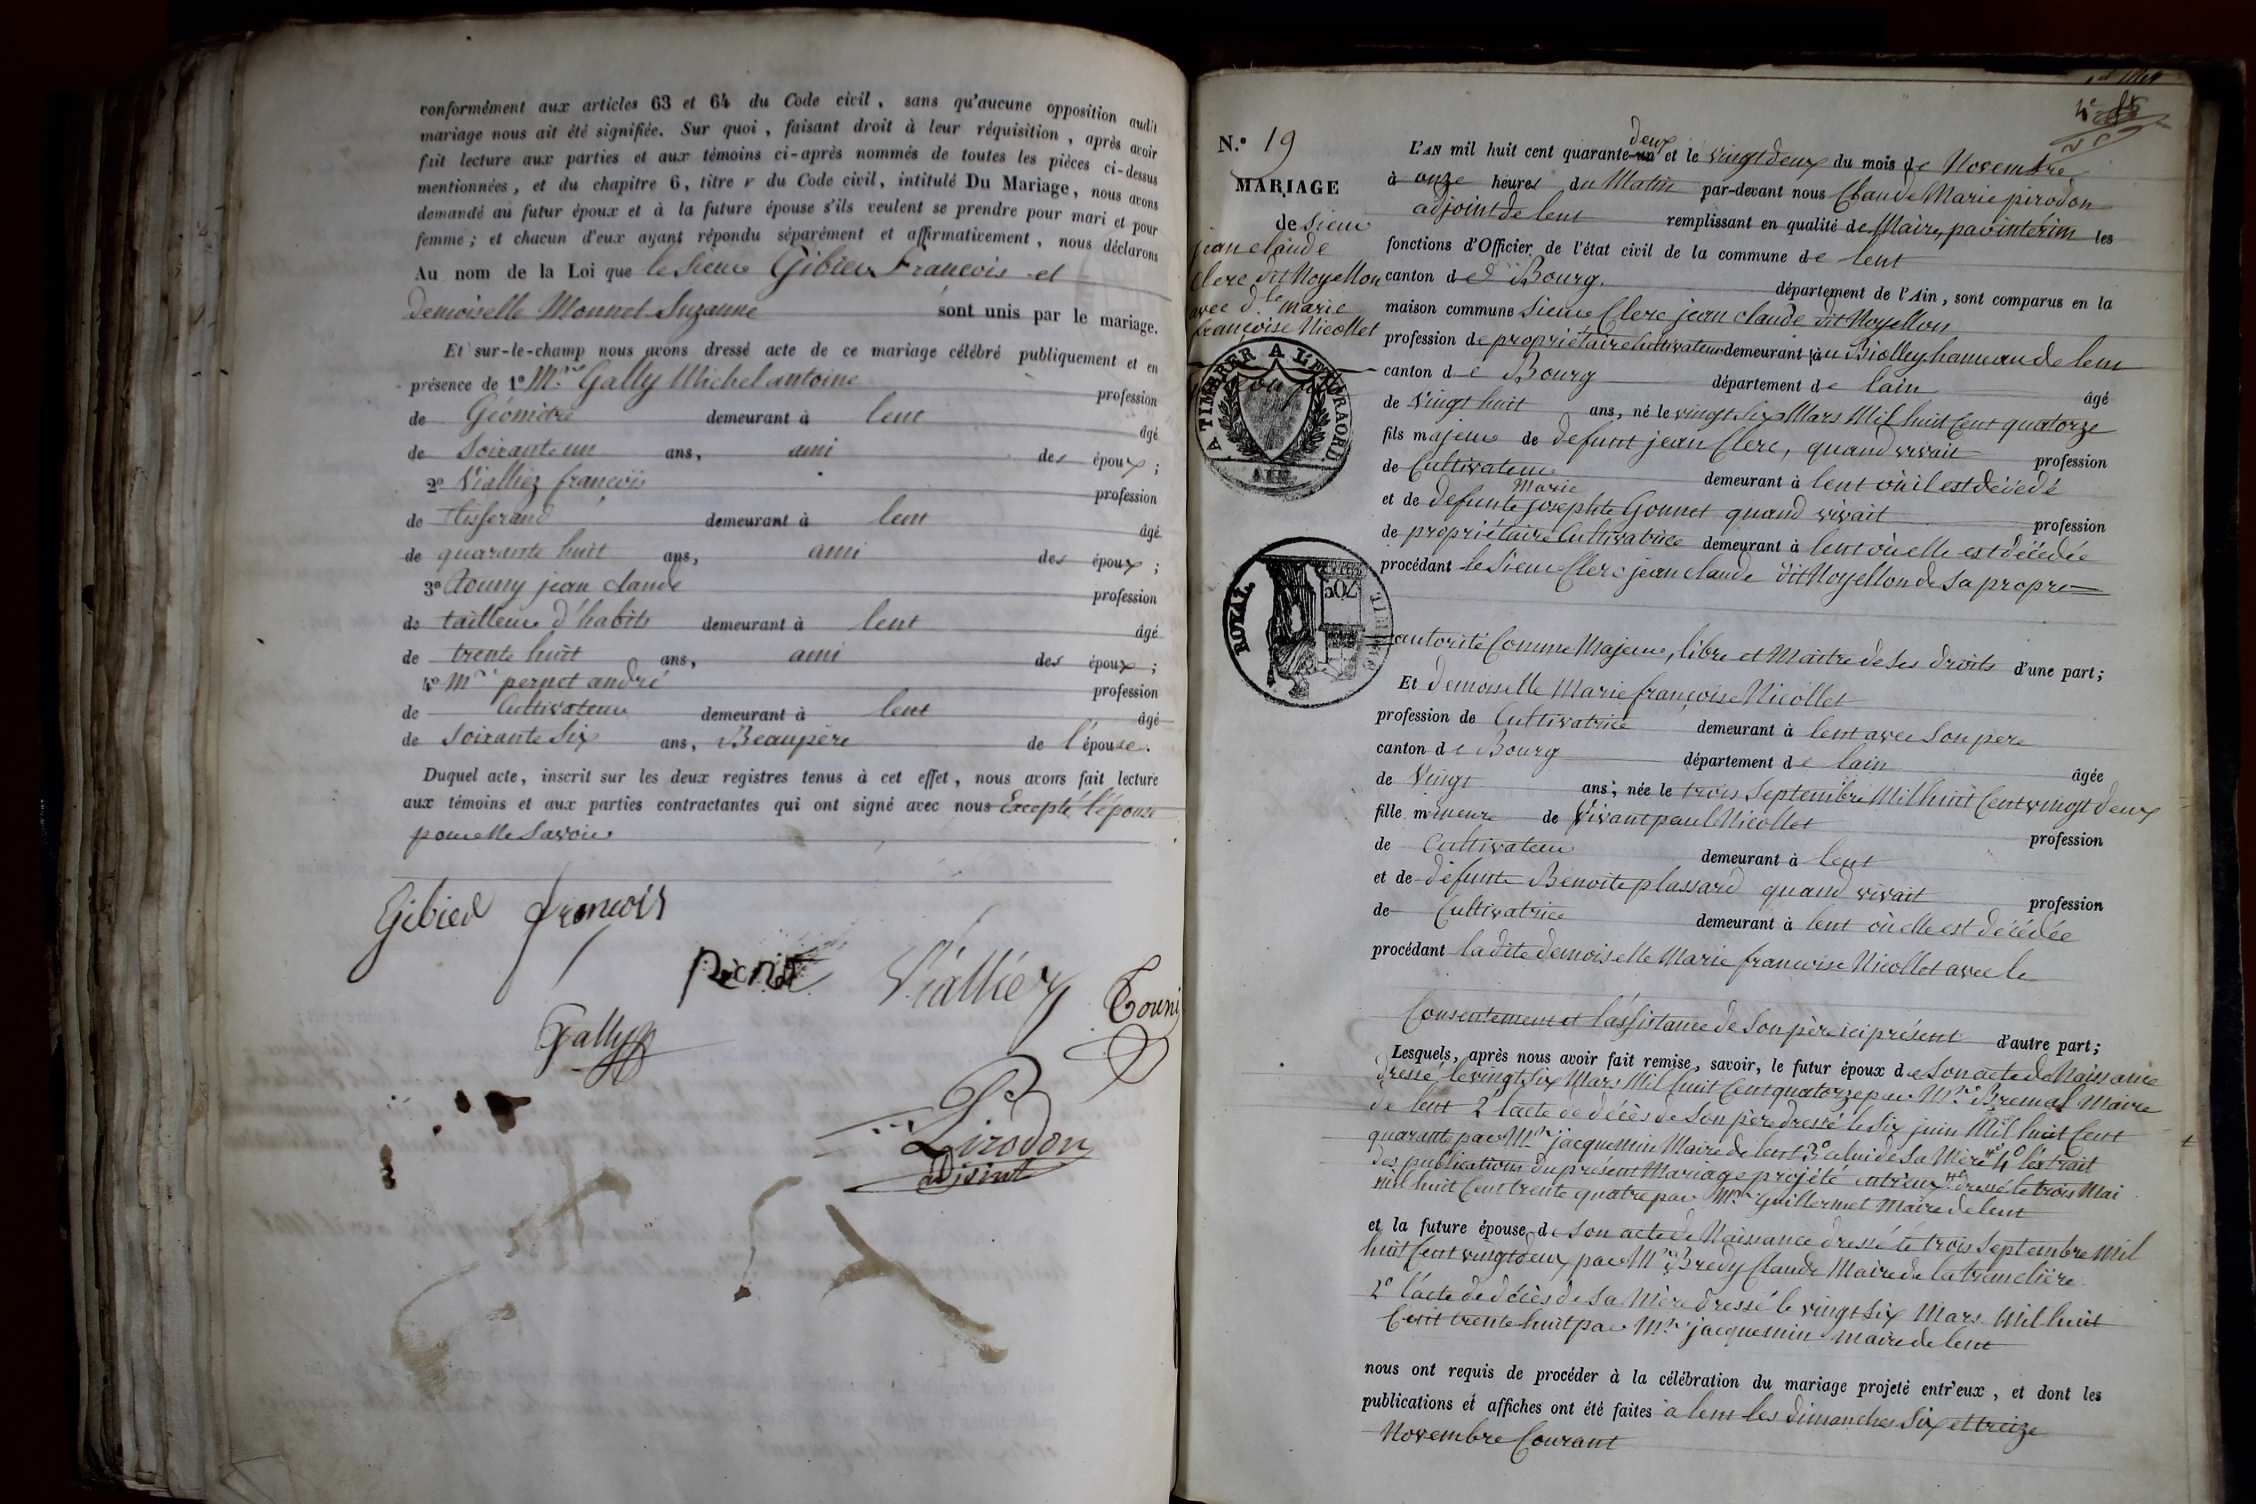 conformément aux articles 63 et 64 du Code civil, sans qu'aucune opposition audit
mariage nous ait été signifiée. Sur quoi, faisant droit à leur réquisition, après avoir
fait lecture aux parties et aux témoins ci-après nommés de toutes les pièces ci-dessus
mentionnées, et du chapitre 6, titre v du Code civil, intitulé Du Mariage, nous avons
demandé au futur époux et à la future épouse s'ils veulent se prendre pour mari et pour
femme; et chacun d'eux ayant répondu séparément et affirmativement, nous déclarons
Au nom de la Loi que le Sieur Gibier François et
demoiselle Monnet Suzanne sont unis par le mariage.
Et sur-le-champ nous avons dressé acte de ce mariage célébré publiquement et en
présence de 1º Mre Gally Michel antoine profession
de Géomètre demeurant à lent âgé
de Soixante un ans, ami des époux;
2º Vialliez françois profession
de tisserand demeurant à lent âgé
de quarante huit ans, ami des époux;
3º touny jean claude profession
de tailleur d'habits demeurant à lent âgé
de trente huit ans, ami des époux;
4º Mre pernet andré profession
de Cultivateur demeurant à lent âgé
de Soixante Six ans, Beaupère de l'épouse.
Duquel acte, inscrit sur les deux registres tenus à cet effet, nous avons fait lecture
aux témoins et aux parties contractantes qui ont signé avec nous Excepté l'épouse
pour ne Savoir
Gibied françois
Viallier
Touni
Gally
Pirodon
adjoint
N.º 19
MARIAGE
de Sieur
jean claude
Clerc dit Noyellon
avec dlle marie
françoise Nicollet
A TIMBRER A L'EXTRAORD.
AIN
ROYAL
TIMBRE
70c
L'AN mil huit cent quarante-un deux et le vingt deux du mois de Novembre
à onze heures du Matin par-devant nous Claude Marie pirodon
adjoint de lent remplissant en qualité de Maire, par interim les
fonctions d'Officier de l'état civil de la commune de lent
canton de Bourg. département de l'Ain, sont comparus en la
maison commune Sieur Clerc jean claude dit Noyellon
profession de propriétaire Cultivateur demeurant au Biolley hameau de lent
canton de Bourg département de l'ain âgé
de Vingt huit ans, né le vingt Six Mars Mil huit Cent quatorze
fils majeur de defunt jean Clerc, quand vivait profession
de Cultivateur demeurant à lent où il est décédé
et de defunte Marie josephte Gonnet quand vivait profession
de propriétaire Cultivatrice demeurant à lent où elle est décédée
procédant le Sieur Clerc jean claude dit Noyellon de Sa propre
autorité Comme Majeur, libre et Maitre de Ses droits d'une part;
Et Demoiselle Marie françoise Nicollet
profession de Cultivatrice demeurant à lent avec Son père
canton de Bourg département de l'ain âgée
de Vingt ans; née le trois Septembre Mil huit Cent vingt deux
fille mineure de Vivant paul Nicollet profession
de Cultivateur demeurant à lent
et de defunte Benoite plassard quand vivait profession
de Cultivatrice demeurant à lent où elle est décédée
procédant la dite demoiselle Marie françoise Nicollet avec le
Consentement et l'assistance de Son père ici présent d'autre part;
Lesquels, après nous avoir fait remise, savoir, le futur époux de Son acte de Naissance
dressé le vingt Six Mars Mil huit Cent quatorze par Mre Bremal Maire
de lent 2º l'acte de décès de Son père dressé le Six juin Mil huit Cent
quarante par Mre jacquemin Maire de lent 3º celui de Sa Mère 4º l'extrait
des publications du présent Mariage projeté entr'eux dressé le trois Mai
mil huit Cent trente quatre par Mre Guillermet Maire de lent
et la future épouse de Son acte de Naissance dressé le trois Septembre Mil
huit Cent vingt deux par Mre Bredy Claude Maire de la tranclière
2º l'acte de décès de Sa Mère dressé le vingt Six Mars Mil huit
Cent trente huit par Mre jacquemin maire de lent
nous ont requis de procéder à la célébration du mariage projeté entr'eux, et dont les
publications et affiches ont été faites à lent les dimanches Six et treize
Novembre Courant